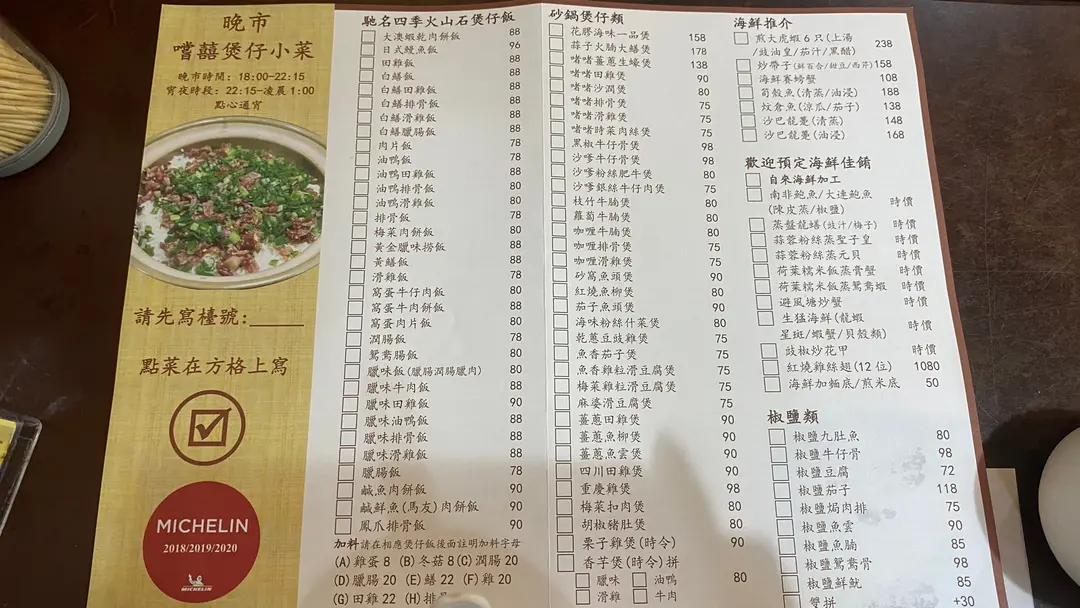 晚市
嚐囍煲仔小菜
晚市時間: 18:00-22:15
宵夜時段: 22:15-凌晨1:00
點心通宵
請先寫檯號:
點菜在方格上寫
MICHELIN
2018/2019/2020
MICHELIN
馳名四季火山石煲仔飯
大澳蝦乾肉餅飯 88
日式鰻魚飯 96
田雞飯 88
白鱔飯 88
白鱔田雞飯 88
白鱔排骨飯 88
白鱔滑雞飯 88
白鱔臘腸飯 88
肉片飯 78
油鴨飯 78
油鴨田雞飯 88
油鴨排骨飯 80
油鴨滑雞飯 80
排骨飯 78
梅菜肉餅飯 80
黃金臘味撈飯 88
黃鱔飯 88
滑雞飯 78
窩蛋牛仔肉飯 80
窩蛋牛肉餅飯 88
窩蛋肉片飯 80
潤腸飯 78
鴛鴦腸飯 80
臘味飯(臘腸潤腸臘肉) 80
臘味牛肉飯 88
臘味田雞飯 90
臘味油鴨飯 88
臘味排骨飯 88
臘味滑雞飯 88
臘腸飯 78
鹹魚肉餅飯 90
鹹鮮魚(馬友)肉餅飯 90
鳳爪排骨飯 90
加料請在相應煲仔飯後面註明加料字母
(A)雞蛋 8 (B)冬菇 8 (C)潤腸 20
(D)臘腸 20 (E)鱔 22 (F)雞 20
(G)田雞 22 (H)排骨
砂鍋煲仔類
花膠海味一品煲 158
蒜子火腩大鱔煲 178
啫啫薑蔥生蠔煲 138
啫啫田雞煲 90
啫啫沙潤煲 80
啫啫排骨煲 75
啫啫滑雞煲 75
啫啫時菜肉絲煲 75
黑椒牛仔骨煲 98
沙嗲牛仔骨煲 98
沙嗲粉絲肥牛煲 80
沙嗲銀絲牛仔肉煲 75
枝竹牛腩煲 80
蘿蔔牛腩煲 80
咖喱牛腩煲 80
咖喱排骨煲 75
咖喱滑雞煲 75
砂窩魚頭煲 90
紅燒魚柳煲 80
茄子魚頭煲 90
海味粉絲什菜煲 80
乾蔥豆豉雞煲 75
魚香茄子煲 75
魚香雞粒滑豆腐煲 75
梅菜雞粒滑豆腐煲 75
麻婆滑豆腐煲 75
薑蔥田雞煲 90
薑蔥魚柳煲 90
薑蔥魚雲煲 90
四川田雞煲 90
重慶雞煲 98
梅菜扣肉煲 80
胡椒豬肚煲 80
栗子雞煲(時令) 90
香芋煲(時令)拼
臘味 油鴨 80
滑雞 牛肉
海鮮推介
煎大虎蝦6只(上湯
/豉油皇/茄汁/黑醋) 238
炒帶子(鮮百合/甜豆/西芹) 158
海鮮賽螃蟹 108
筍殼魚(清蒸/油浸) 188
炆倉魚(涼瓜/茄子) 138
沙巴龍躉(清蒸) 148
沙巴龍躉(油浸) 168
歡迎預定海鮮佳餚
自來海鮮加工
南非鮑魚/大連鮑魚
(陳皮蒸/椒鹽) 時價
蒸盤龍鱔(豉汁/梅子) 時價
蒜蓉粉絲蒸聖子皇 時價
蒜蓉粉絲蒸元貝 時價
荷葉糯米飯蒸膏蟹 時價
荷葉糯米飯蒸鴛鴦蝦 時價
避風塘炒蟹 時價
生猛海鮮(龍蝦
星斑/蝦蟹/貝殼類) 時價
豉椒炒花甲 時價
紅燒雞絲翅(12位) 1080
海鮮加麵底/煎米底 50
椒鹽類
椒鹽九肚魚 80
椒鹽牛仔骨 98
椒鹽豆腐 72
椒鹽茄子 118
椒鹽焗肉排 75
椒鹽魚雲 90
椒鹽魚腩 85
椒鹽鴛鴦骨 98
椒鹽鮮魷 85
雙拼 +30